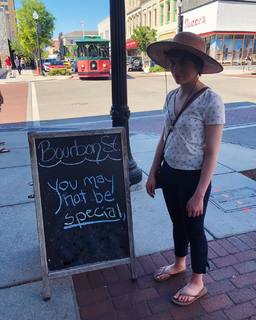 Bourbon St.
you may
not be
special